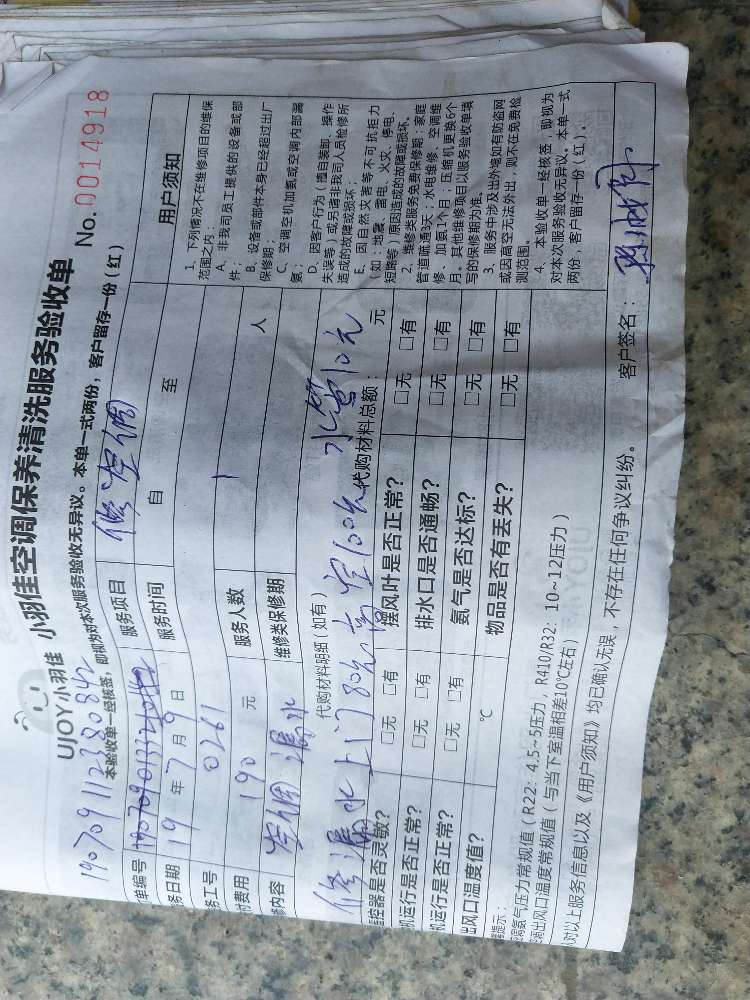 UJOY小羽佳 小羽佳空调保养清洗服务验收单 No.0014918
190709112380842
本验收单一经核签，即视为对本次服务验收无异议。本单一式两份，客户留存一份(红)
单编号 服务项目 修空调
务日期 19年7月9日 服务时间 自 至
务工号 0261
付费用 190 元 服务人数 1 人
修内容 空调漏水 维修类保修期
代购材料明细(如有)
修漏水上门80元 高空100元 水管10元
代购材料总额： 元
控器是否灵敏? □无 □有 摆风叶是否正常? □无 □有
机运行是否正常? □无 □有 排水口是否通畅? □无 □有
机运行是否正常? □无 □有 氨气是否达标? □无 □有
出风口温度值? ℃ 物品是否有丢失? □无 □有
用户须知
1、下列情况不在维修项目的维保
范围之内：
A、非我司员工提供的设备或部
件；
B、设备或部件本身已经超过出厂
保修期；
C、空调空机加氨或空调内部漏
氨；
D、因客户行为(擅自装卸、操作
失误等)或另请非我司人员检修所
造成的故障或损坏；
E、因自然灾害等不可抗拒力
(如：地震、雷电、火灾、停电、
短路等)原因造成的故障或损坏。
2、维修类服务免费保修期：家庭
管道疏通3天；水电维修、空调维
修、加氨1个月；压缩机更换6个
月。其他维修项目以服务验收单填
写的保修期为准。
3、服务中涉及出外墙如有防盗网
或因高空无法外出，则不在免费检
测范围。
4、本验收单一经核签，即视为
对本次服务验收无异议。本单一式
两份，客户留存一份(红)。
提示：
空调氨气压力常规值(R22：4.5~5压力，R410/R32：10~12压力)
空调出风口温度常规值(与当下室温相差10℃左右)
人对以上服务信息以及《用户须知》均已确认无误，不存在任何争议纠纷。 客户签名：